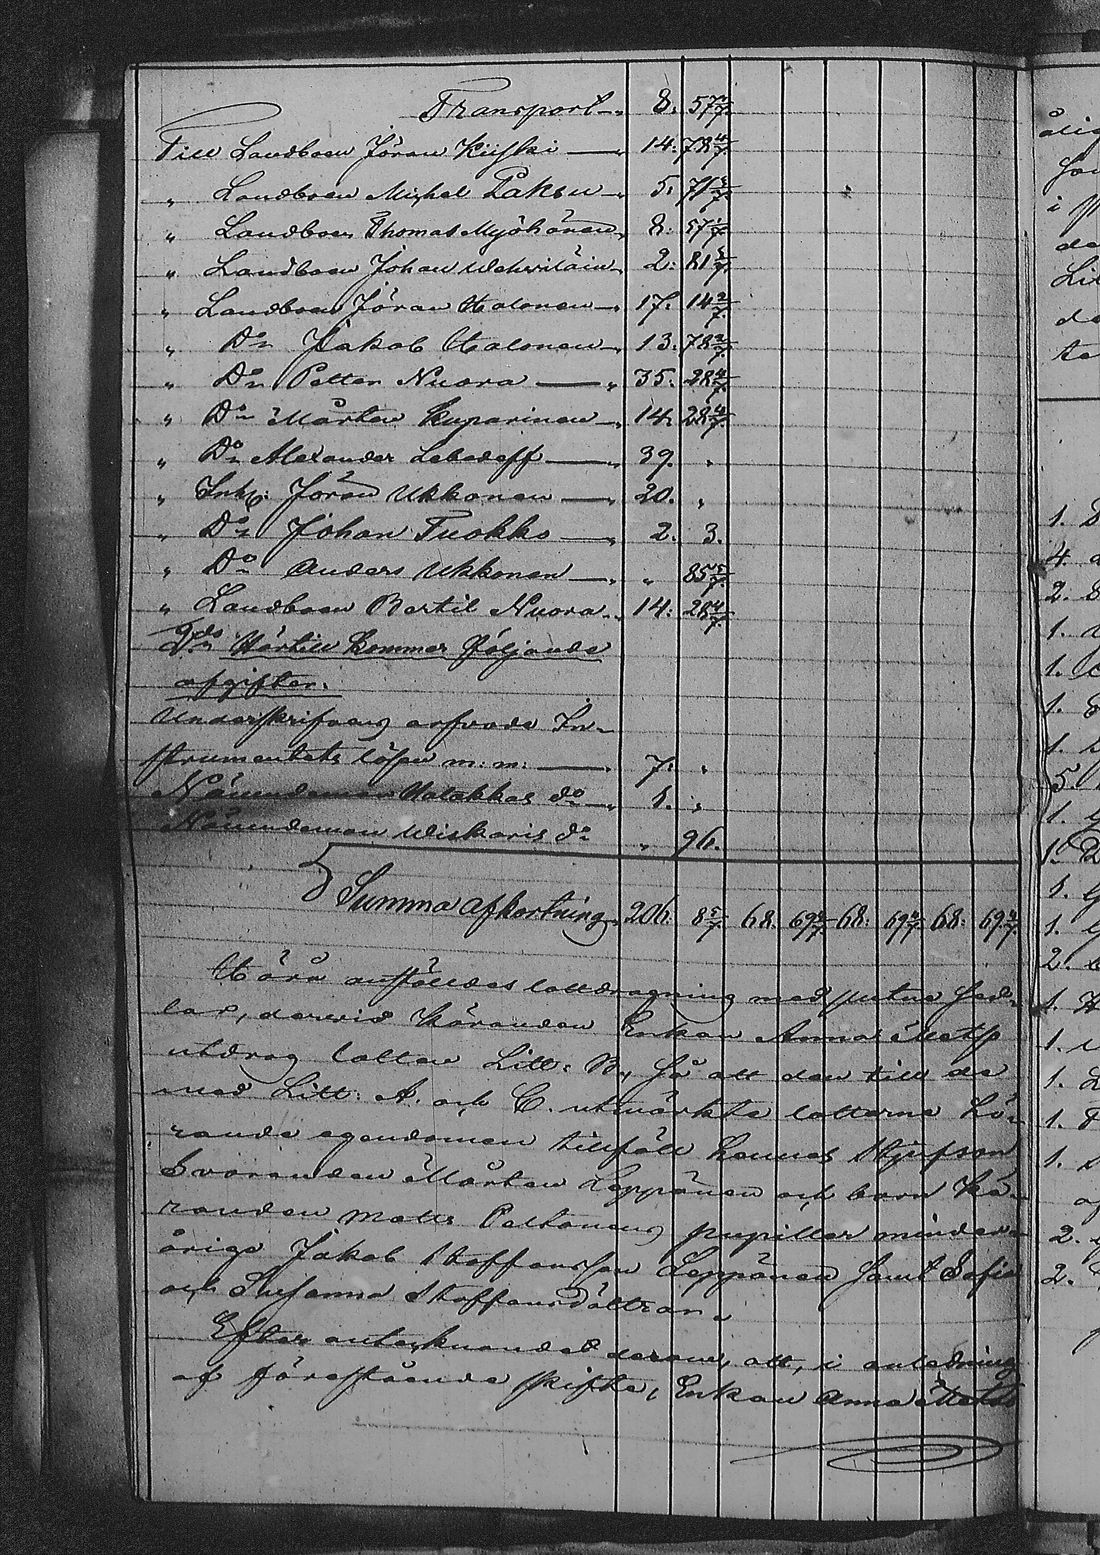 Transport 8. 57 1/7.
Till Landboen Jöran Kiiski — 14. 78 4/7.
„ Landboen Michel Paksu 5. 71 3/7
„ Landboen Thomas Myöhänen 8. 57 1/7
„ Landboen Johan Wehviläin 2. 81 5/7.
„ Landboen Jöran Halonen 17. 14 2/7.
„ Do Jakob Halonen 13. 78 2/7.
„ Do Petter Nuora — 35. 28 4/7.
„ Do Mårten Kuparinen 14. 28 4/7.
„ Do Alexander Lebedeff — 39. „
„ Inh: Jöran Ukkonen — 20. „
„ Do Johan Tuokko — 2. 3.
„ Do Anders Ukkonen — „ 85 5/7.
„ Landboen Bertil Nuora 14. 28 4/7
Härtill kommer följande
afgifter.
Underskrifvarens arfvode In-
strumentets lösen m: m: — 7. „
Nämndeman Hatakkas do 1. „
Nämndeman Wiskaris do „ 96.
Summa afkortning 206. 8 5/7 68. 69 4/7 68. 69 4/7 68. 69 4/7
Härå anstäldes lottdragning med slutne sed-
lar, dervid Käranden Enkan Anna Matsd
utdrog lotten Litt: B, så att den till de
med Litt: A. och C. utmärkta lotterna hö-
rande egendomen tillföll hennes Styfson
Svaranden Mårten Leppänen och barn Kä-
randen Matts Peltonens pupiller minder-
åriga Jakob Staffansson Leppänen samt Sofia
och Susanna Staffansdöttrar.
Efter antecknandet deraf, att, i anledning
af förestående skifte, Enkan Anna Matsd